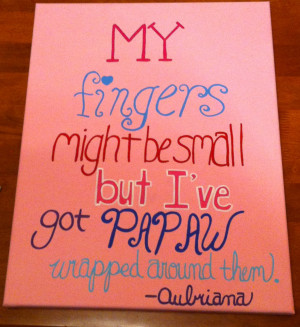 MY
fingers
might be small
but I've
got PAPAW
wrapped around them.
-Aubriana